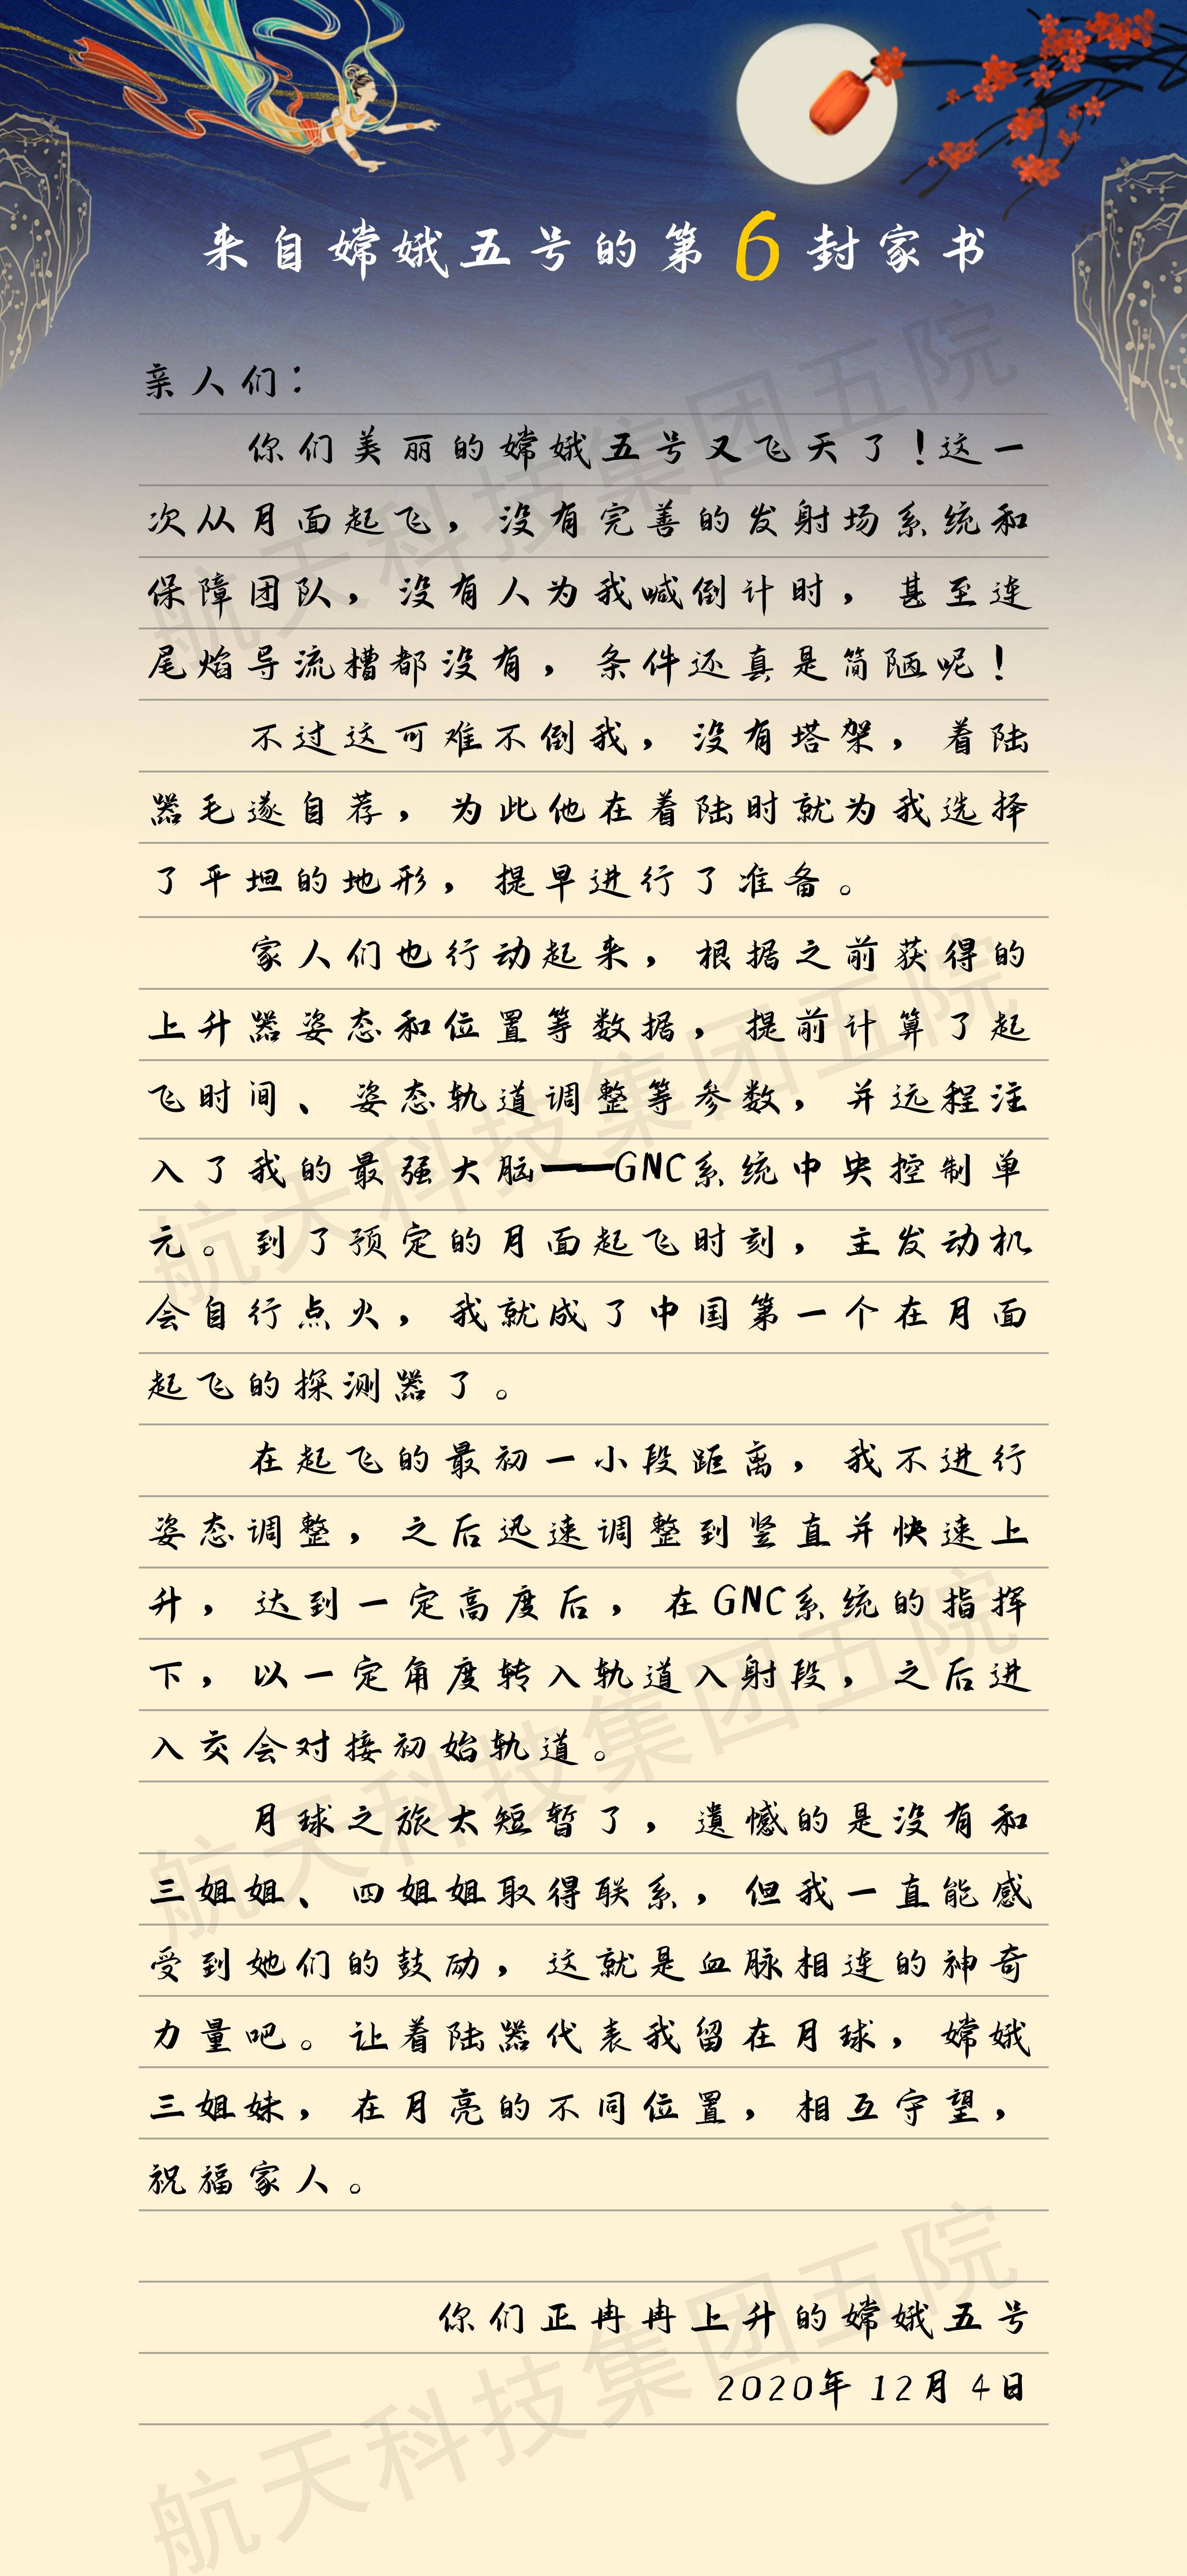 来自嫦娥五号的第6封家书
亲人们：
你们美丽的嫦娥五号又飞天了！这一
次从月面起飞，没有完善的发射场系统和
保障团队，没有人为我喊倒计时，甚至连
尾焰导流槽都没有，条件还真是简陋呢！
不过这可难不倒我，没有塔架，着陆
器毛遂自荐，为此他在着陆时就为我选择
了平坦的地形，提早进行了准备。
家人们也行动起来，根据之前获得的
上升器姿态和位置等数据，提前计算了起
飞时间、姿态轨道调整等参数，并远程注
入了我的最强大脑——GNC系统中央控制单
元。到了预定的月面起飞时刻，主发动机
会自行点火，我就成了中国第一个在月面
起飞的探测器了。
在起飞的最初一小段距离，我不进行
姿态调整，之后迅速调整到竖直并快速上
升，达到一定高度后，在GNC系统的指挥
下，以一定角度转入轨道入射段，之后进
入交会对接初始轨道。
月球之旅太短暂了，遗憾的是没有和
三姐姐、四姐姐取得联系，但我一直能感
受到她们的鼓励，这就是血脉相连的神奇
力量吧。让着陆器代表我留在月球，嫦娥
三姐妹，在月亮的不同位置，相互守望，
祝福家人。
你们正冉冉上升的嫦娥五号
2020年 12月 4日
航天科技集团五院
航天科技集团五院
航天科技集团五院
航天科技集团五院